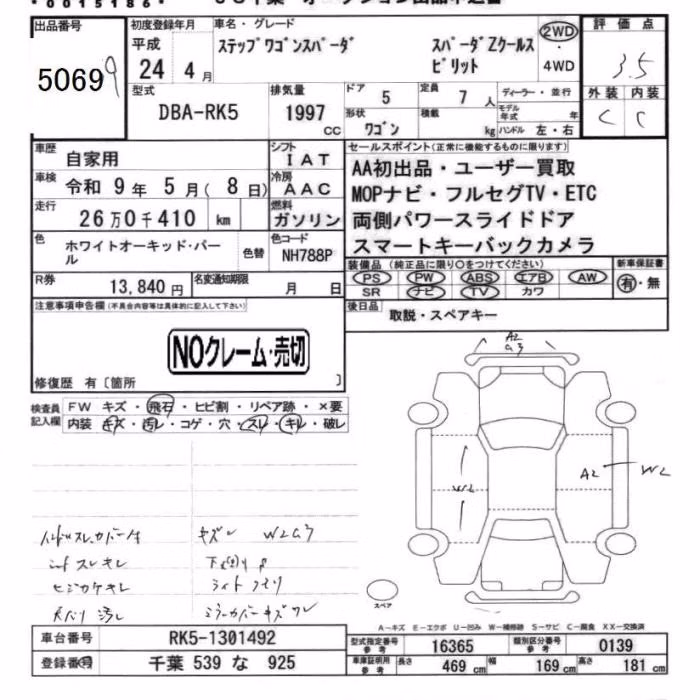 * 0 0 1 5 1 8 6 *
出品番号 初度登録年月 車名・グレード 評価点
平成 24 4月 ステップワゴンスパーダ スパーダZクールスピリット 2WD 4WD 3.5
50699
型式 DBA-RK5 排気量 1997 CC ドア 5 定員 7 人 ディーラー・並行 外装 内装
形状 ワゴン 積載 kg モデル年式 年 ハンドル 左・右 C C
車歴 自家用 シフト IAT セールスポイント(正常に機能するものに限ります)
車検 令和 9年 5月( 8日) 冷房 AAC AA初出品・ユーザー買取
走行 26万0千410 km 燃料 ガソリン MOPナビ・フルセグTV・ETC
両側パワースライドドア
色 ホワイトオーキッド・パール 色替 色コード NH788P スマートキーバックカメラ
装備品(純正品に限り○をつけてください) 新車保証書
R券 13,840円 名変通知期限 月 日 PS PW ABS エアB AW 有・無
SR ナビ TV カワ
注意事項申告欄(不具合内容等は具体的に記入して下さい) 後日品 取説・スペアキー
NOクレーム・売切
修復歴 有〔箇所 〕
A2
検査員記入欄 FW キズ・飛石・ヒビ割・リペア跡・×要
内装 キズ・汚レ・コゲ・穴・スレ・キレ・破レ
W2 A2 W2
スレキレ
ヒジカケキレ ライトクモリ
スペア
A-キズ E-エクボ U-凹み W-補修跡 S-サビ C-腐食 XX-交換済
車台番号 RK5-1301492 型式指定番号 参考 16365 類別区分番号 参考 0139
登録番号 千葉 539 な 925 車庫証明用 参考 長さ 469 cm 幅 169 cm 高さ 181 cm